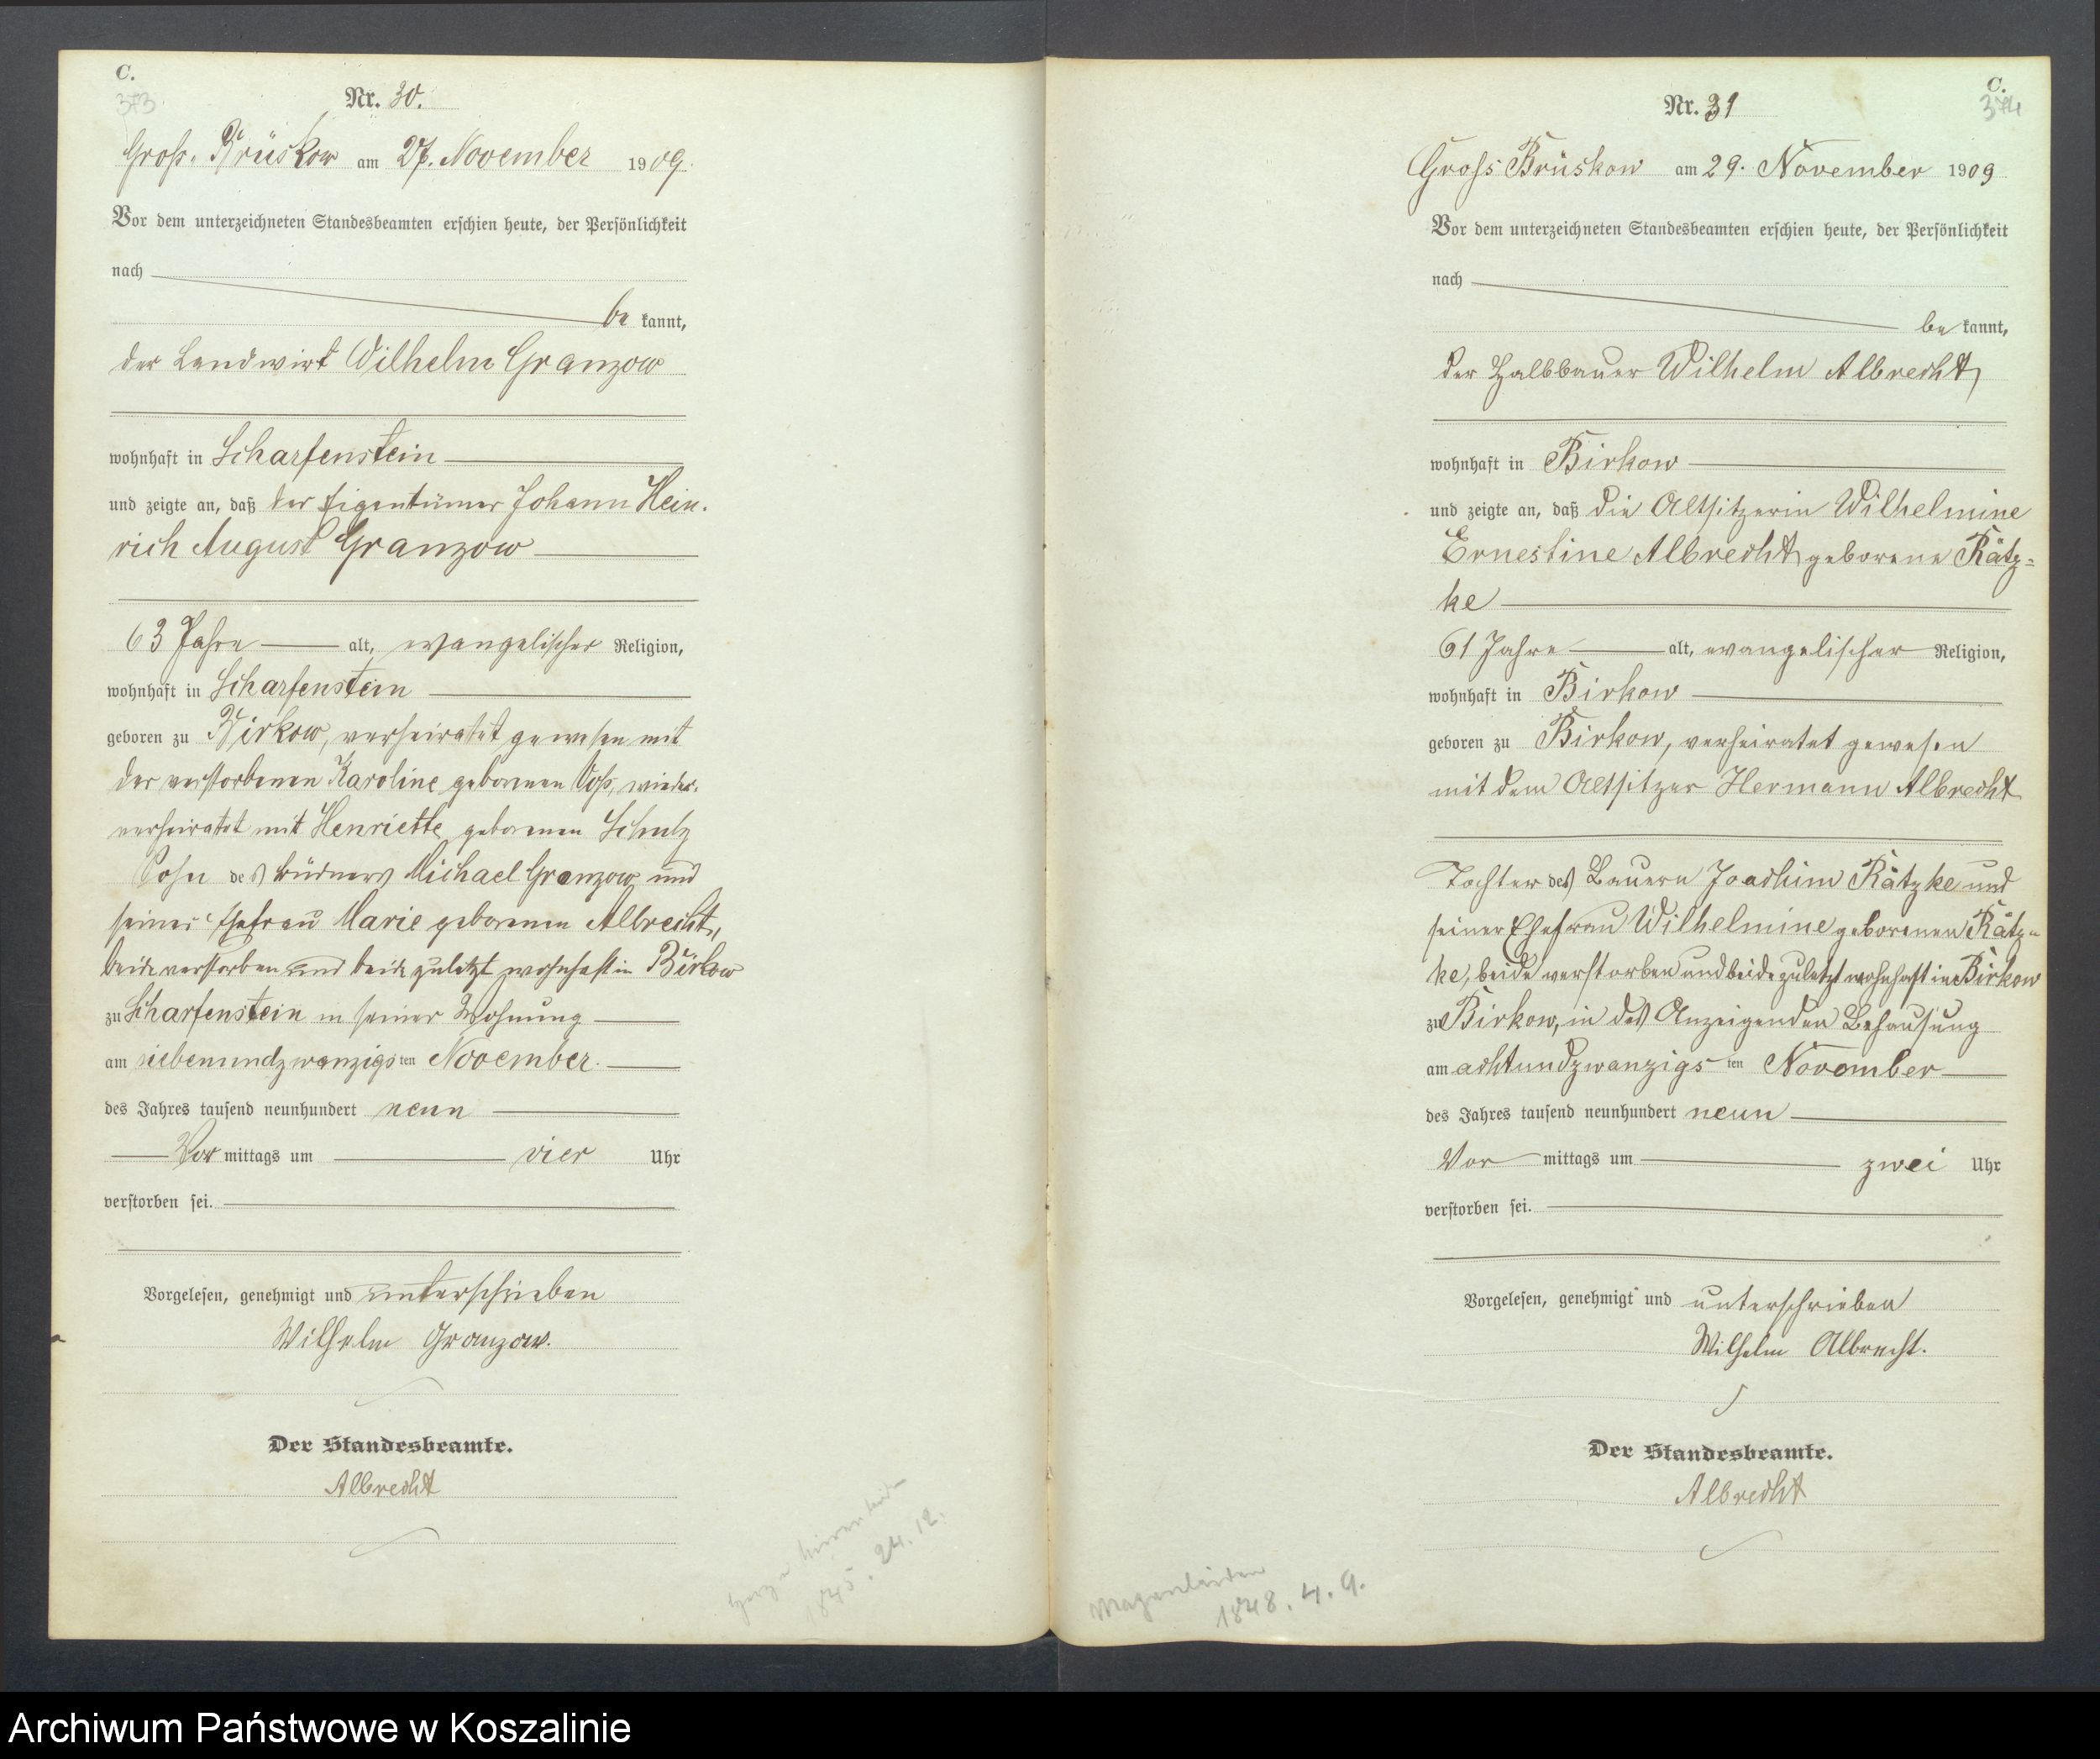 C.
373
Nr. 30.
Groß-Brüskow am 27. November 1909.
Vor dem unterzeichneten Standesbeamten erschien heute, der Persönlichkeit
nach
be kannt,
der Landwirt Wilhelm Granzow
wohnhaft in Scharfenstein
und zeigte an, daß der Eigentümer Johann Hein-
rich August Granzow
63 Jahre alt, evangelischer Religion,
wohnhaft in Scharfenstein
geboren zu Birkow, verheiratet gewesen mit
der verstorbenen Karoline geborenen Voß, wieder-
verheiratet mit Henriette geborenen Schulz
Sohn des Büdners Michael Granzow und
seiner Ehefrau Marie geborenen Albrecht,
beide verstorben und beide zuletzt wohnhaft in Birkow
zu Scharfenstein in seiner Wohnung
am siebenundzwanzigsten November
des Jahres tausend neunhundert neun
Vor mittags um vier Uhr
verstorben sei.
Vorgelesen, genehmigt und unterschrieben
Wilhelm Granzow.
Der Standesbeamte.
Albrecht
1845. 24.12.
C.
374
Nr. 31
Gross Brüskow am 29. November 1909
Vor dem unterzeichneten Standesbeamten erschien heute, der Persönlichkeit
nach
be kannt,
der Halbbauer Wilhelm Albrecht,
wohnhaft in Birkow
und zeigte an, daß die Altsitzerin Wilhelmine
Ernestine Albrecht, geborene Rätz=
ke
61 Jahre alt, evangelischer Religion,
wohnhaft in Birkow
geboren zu Birkow, verheiratet gewesen
mit dem Altsitzer Hermann Albrecht
Tochter des Bauern Joachim Rätzke und
seiner Ehefrau Wilhelmine geborenen Rätz=
ke, beide verstorben und beide zuletzt wohnhaft in Birkow
zu Birkow, in des Anzeigenden Behausung
am achtundzwanzigsten November
des Jahres tausend neunhundert neun
Vor mittags um zwei Uhr
verstorben sei.
Vorgelesen, genehmigt und unterschrieben
Wilhelm Albrecht.
Der Standesbeamte.
Albrecht
Magenleiden
1848. 4. 9.
Archiwum Państwowe w Koszalinie